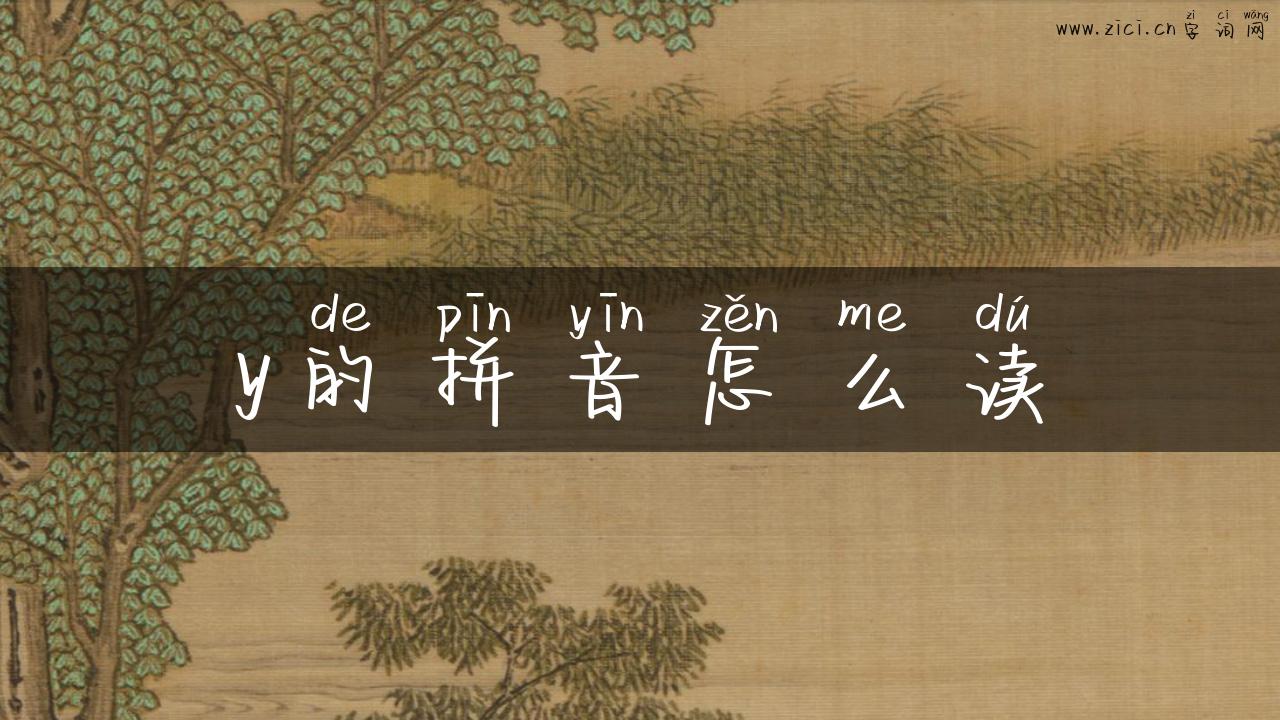 zì cí wǎng
www.zici.cn字词网
de pīn yīn zěn me dú
y的拼音怎么读